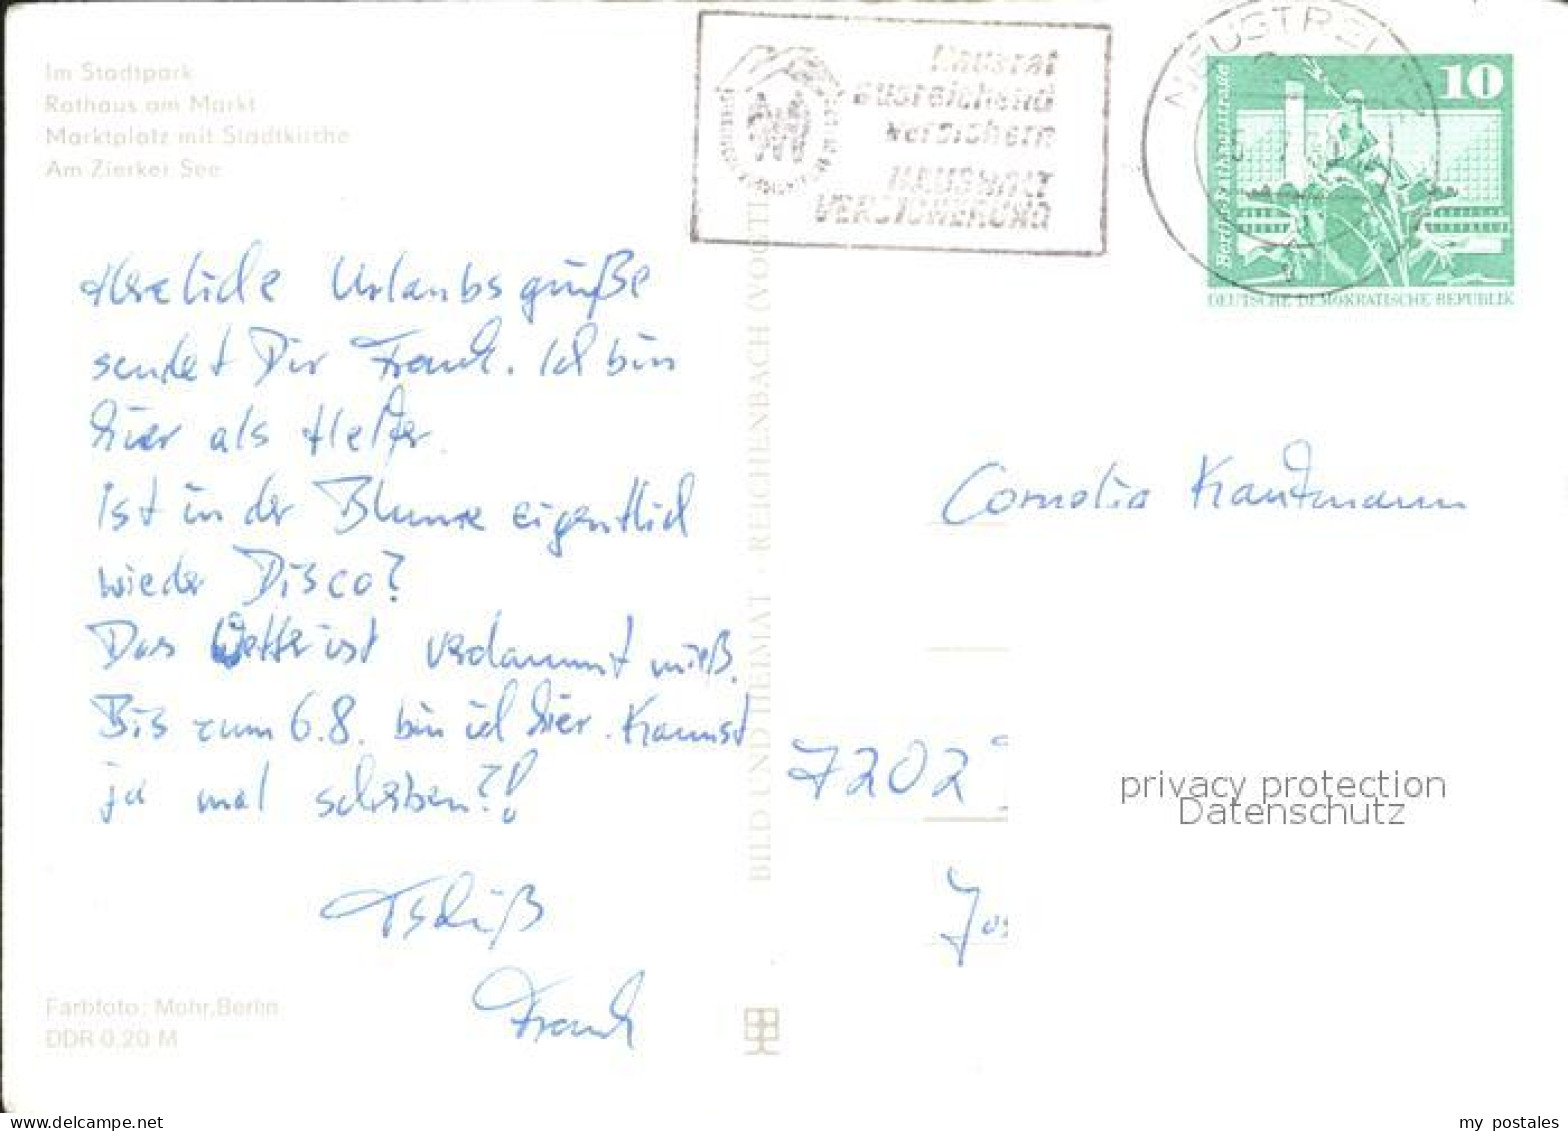 Im Stadtpark
Rathaus am Markt
Marktplatz mit Stadtkirche
Am Zierker See
Hausrat
ausreichend
versichern
HAUSHALT
VERSICHERUNG
NEUSTRELITZ
10
Berlin-Rathausstraße
DEUTSCHE DEMOKRATISCHE REPUBLIK
Herzliche Urlaubsgrüße
sendet Dir Frank. Ich bin
hier als Helfer.
Ist in der Blume eigentlich
wieder Disco?
Das Wetter ist verdammt mieß.
Bis zum 6.8. bin ich hier. Kannst
ja mal schreiben?!
Tschüß
Frank
Cornelia Kaufmann
7202
Jos
BILD UND HEIMAT · REICHENBACH (VOGTL
Farbfoto: Mohr, Berlin
DDR 0,20 M
privacy protection
Datenschutz
www.delcampe.net
my_postales